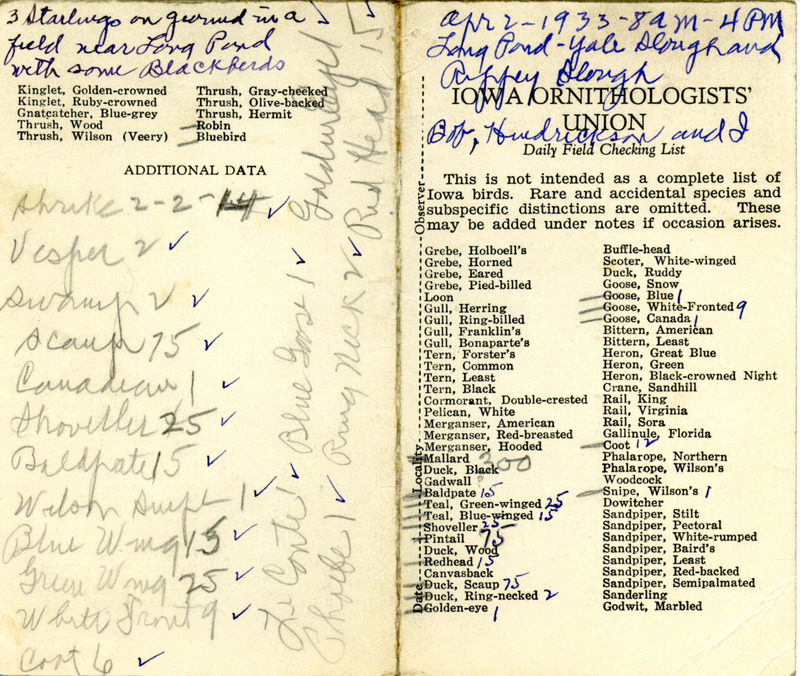 3 Starlings on ground in a
field near Long Pond
with some Blackberds
Kinglet, Golden-crowned
Kinglet, Ruby-crowned
Gnatcatcher, Blue-grey
Thrush, Wood
Thrush, Wilson (Veery)
Thrush, Gray-cheeked
Thrush, Olive-backed
Thrush, Hermit
Robin
Bluebird
ADDITIONAL DATA
Shrike 2-2-14 ✓
Vesper 2 ✓
Swamp 2 ✓
Scaup 75 ✓
Canadian 1 ✓
Shoveller 25 ✓
Baldpate 15 ✓
Wilson Snipe 1 ✓
Blue Wing 15 ✓
Green Wing 25 ✓
White Front 9 ✓
Coot 6 ✓
Le Conte 1 ✓ Blue Goose 1 ✓ Goldeneye 1
Phoebe 1 ✓ Ring Neck 2 ✓ Red Head 15 ✓
Apr 2-1933-8 am-4 PM
Long Pond-Yale Slough and
Rippey Slough
IOWA ORNITHOLOGISTS'
UNION
Bob, Hendrickson and I
Daily Field Checking List
This is not intended as a complete list of
Iowa birds. Rare and accidental species and
subspecific distinctions are omitted. These
may be added under notes if occasion arises.
Observer
Locality
Date
Grebe, Holboell's
Grebe, Horned
Grebe, Eared
Grebe, Pied-billed
Loon
Gull, Herring
Gull, Ring-billed
Gull, Franklin's
Gull, Bonaparte's
Tern, Forster's
Tern, Common
Tern, Least
Tern, Black
Cormorant, Double-crested
Pelican, White
Merganser, American
Merganser, Red-breasted
Merganser, Hooded
Mallard 300
Duck, Black
Gadwall ?
Baldpate 15
Teal, Green-winged 25
Teal, Blue-winged 15
Shoveller 25
Pintail 75
Duck, Wood
Redhead 15
Canvasback
Duck, Scaup 75
Duck, Ring-necked 2
Golden-eye 1
Buffle-head
Scoter, White-winged
Duck, Ruddy
Goose, Snow
Goose, Blue 1
Goose, White-Fronted 9
Goose, Canada 1
Bittern, American
Bittern, Least
Heron, Great Blue
Heron, Green
Heron, Black-crowned Night
Crane, Sandhill
Rail, King
Rail, Virginia
Rail, Sora
Gallinule, Florida
Coot 12
Phalarope, Northern
Phalarope, Wilson's
Woodcock
Snipe, Wilson's 1
Dowitcher
Sandpiper, Stilt
Sandpiper, Pectoral
Sandpiper, White-rumped
Sandpiper, Baird's
Sandpiper, Least
Sandpiper, Red-backed
Sandpiper, Semipalmated
Sanderling
Godwit, Marbled